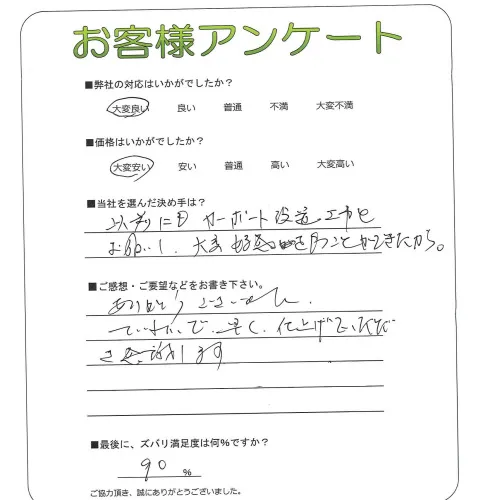 お客様アンケート
■弊社の対応はいかがでしたか？
大変良い 良い 普通 不満 大変不満
■価格はいかがでしたか？
大変安い 安い 普通 高い 大変高い
■当社を選んだ決め手は？
以前にも カーポート設置工事を
お願いし、大変 を ことができたから。
■ご感想・ご要望などをお書き下さい。
ありがとうございました。
ていねいで 早く、仕上げていただ
き 感謝します
■最後に、ズバリ満足度は何％ですか？
90 ％
ご協力頂き、誠にありがとうございました。